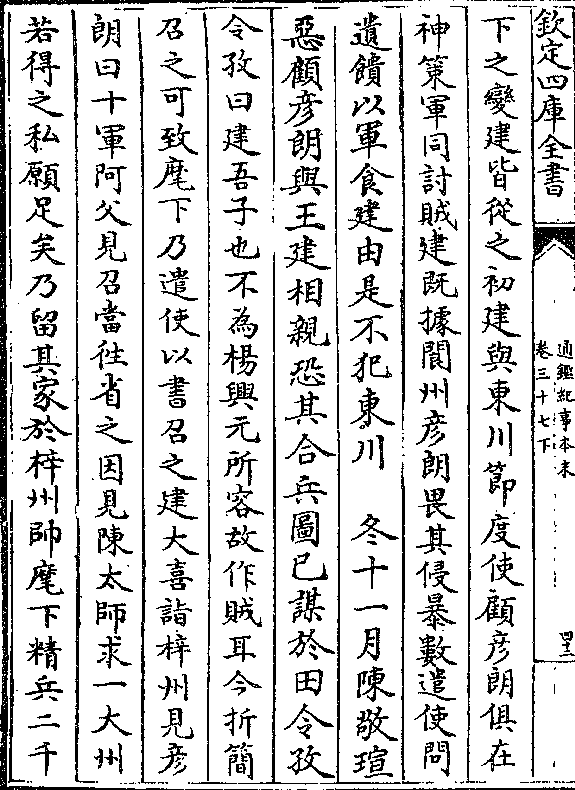 欽定四庫全書
通鑑紀事本末
卷三十七下
四十三
下之變建皆從之初建與東川節度使顧彦朗俱在
神策軍同討賊建既據閬州彦朗畏其侵暴數遣使問
遺饋以軍食建由是不犯東川　冬十一月陳敬瑄
惡顧彦朗與王建相親恐其合兵圖已謀於田令孜
令孜曰建吾子也不為楊興元所容故作賊耳今折簡
召之可致麾下乃遣使以書召之建大喜詣梓州見彦
朗曰十軍阿父見召當徃省之因見陳太師求一大州
若得之私願足矣乃留其家於梓州帥麾下精兵二千